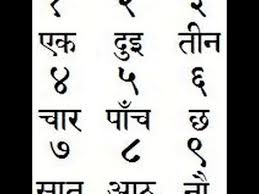 १ २ ३
एक दुइ तीन
४ ५ ६
चार पाँच छ
७ ८ ९
सात आठ नौ